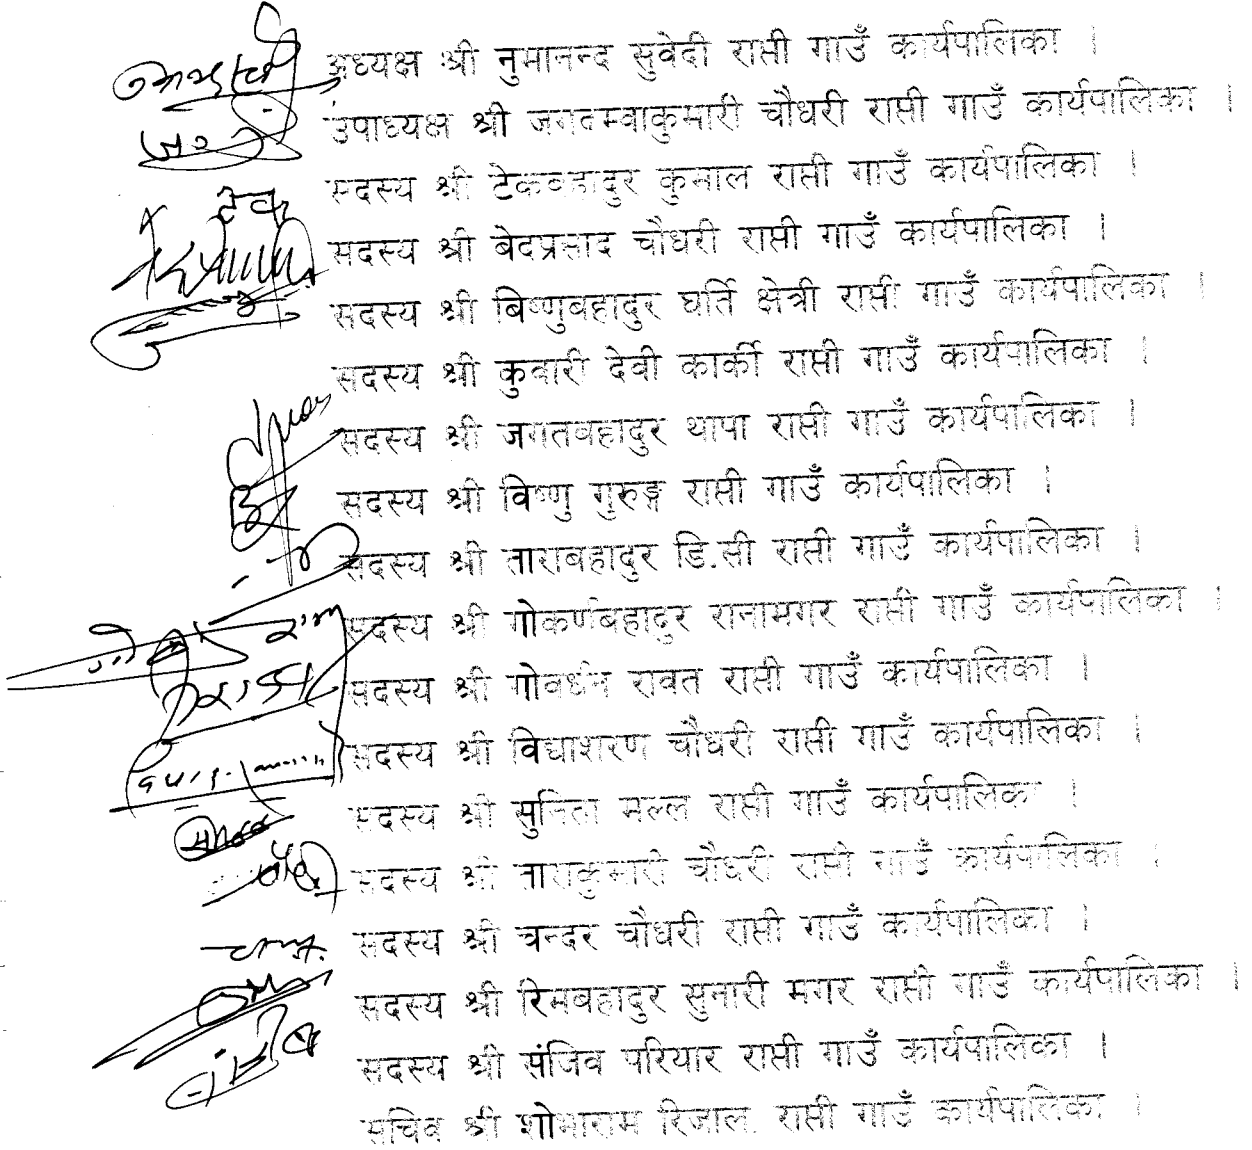 अध्यक्ष श्री नुमानन्द सुवेदी राप्ती गाउँ कार्यपालिका ।
उपाध्यक्ष श्री जगतम्वाकुमारी चौधरी राप्ती गाउँ कार्यपालिका ।
सदस्य श्री टेकबहादुर कुमाल राप्ती गाउँ कार्यपालिका ।
सदस्य श्री बेदप्रसाद चौधरी राप्ती गाउँ कार्यपालिका ।
सदस्य श्री बिष्णुबहादुर घर्ति क्षेत्री राप्ती गाउँ कार्यपालिका ।
सदस्य श्री कुवारी देवी कार्की राप्ती गाउँ कार्यपालिका ।
सदस्य श्री जगतबहादुर थापा राप्ती गाउँ कार्यपालिका ।
सदस्य श्री विष्णु गुरुङ्ग राप्ती गाउँ कार्यपालिका ।
सदस्य श्री ताराबहादुर डि.सी राप्ती गाउँ कार्यपालिका ।
सदस्य श्री गोकर्णबहादुर रानामगर राप्ती गाउँ कार्यपालिका ।
सदस्य श्री गोवर्धन रावत राप्ती गाउँ कार्यपालिका ।
सदस्य श्री विद्याशरण चौधरी राप्ती गाउँ कार्यपालिका ।
सदस्य श्री सुनिता मल्ल राप्ती गाउँ कार्यपालिका ।
सदस्य श्री ताराकुमारी चौधरी राप्ती गाउँ कार्यपालिका ।
सदस्य श्री चन्दर चौधरी राप्ती गाउँ कार्यपालिका ।
सदस्य श्री रिमबहादुर सुनारी मगर राप्ती गाउँ कार्यपालिका ।
सदस्य श्री संजिव परियार राप्ती गाउँ कार्यपालिका ।
सचिव श्री शोभाराम रिजाल राप्ती गाउँ कार्यपालिका ।